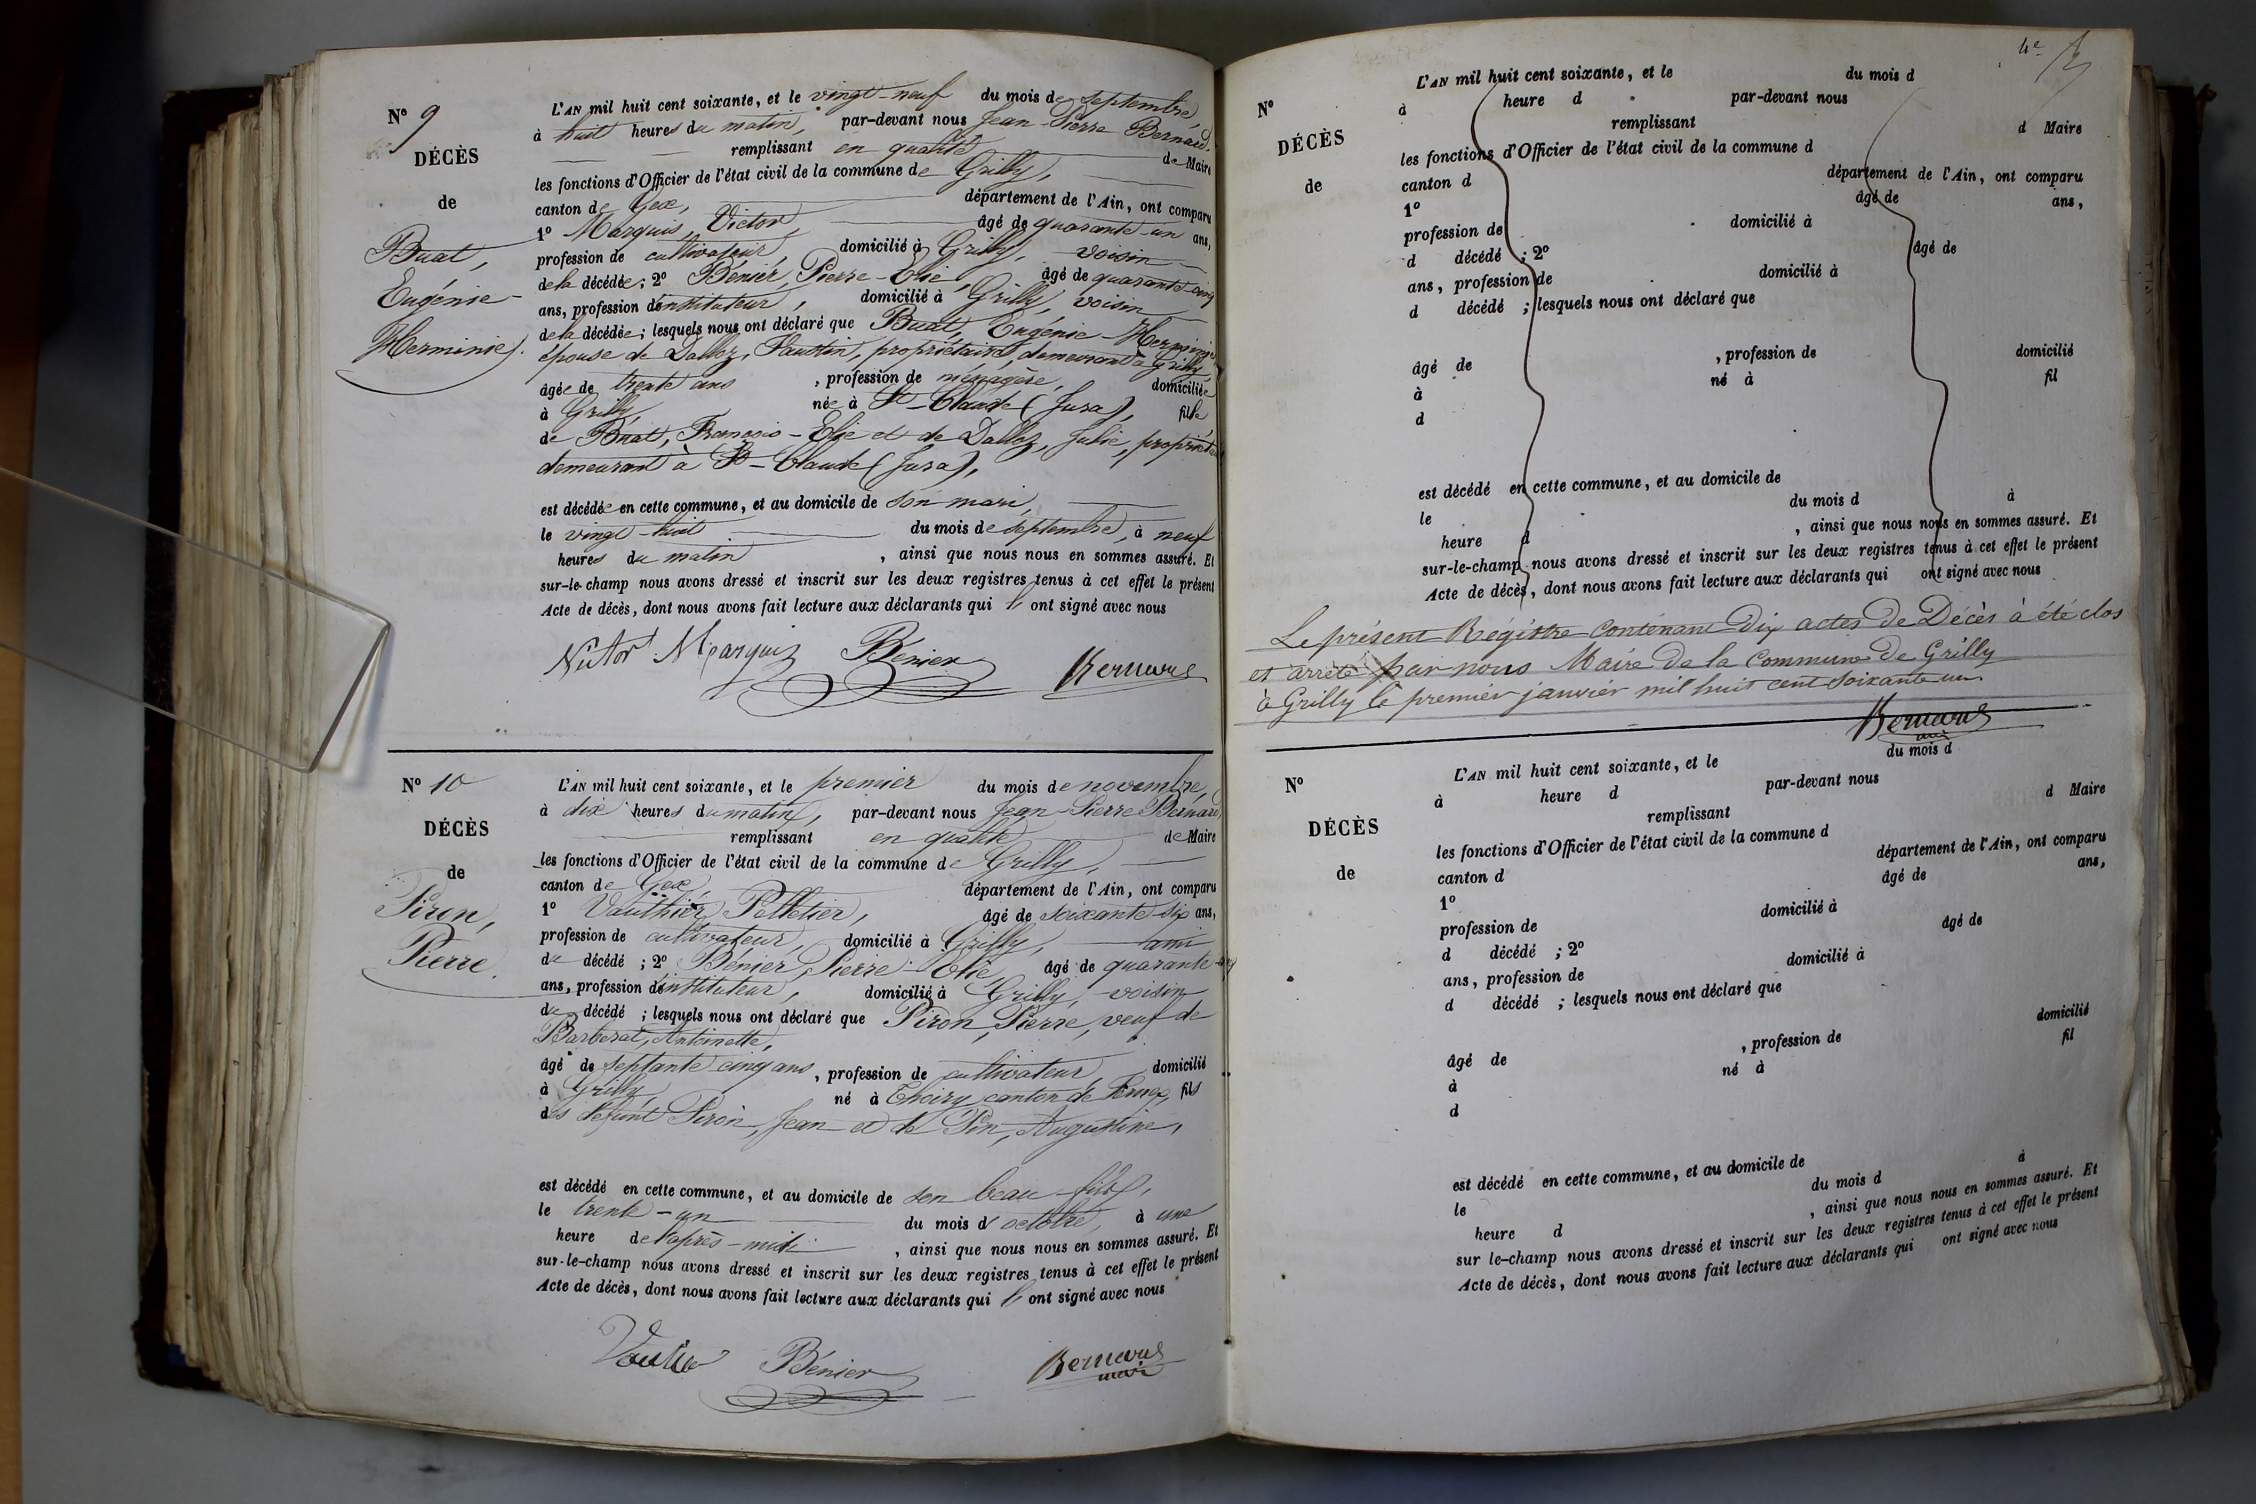 N° 9
DÉCÈS
de
Buat,
Eugénie-
Herminie.
L'AN mil huit cent soixante, et le vingt-neuf du mois de septembre,
à huit heures du matin, par-devant nous Jean-Pierre Bernard
remplissant en qualité de Maire
les fonctions d'Officier de l'état civil de la commune de Grilly,
canton de Gex, département de l'Ain, ont comparu
1° Marquis, Victor, âgé de quarante-un ans,
profession de cultivateur, domicilié à Grilly, voisin
de la décédée; 2° Bénier, Pierre-Elie, âgé de quarante-cinq
ans, profession d'instituteur, domicilié à Grilly, voisin
de la décédée; lesquels nous ont déclaré que Buat, Eugénie-Herminie
épouse de Dalloz, Faustin, propriétaire, demeurant à Grilly,
âgée de trente ans, profession de ménagère, domiciliée
à Grilly, née à St-Claude (Jura), fille
de Buat, François-Elie et de Dalloz, Julie,
demeurant à St-Claude (Jura),
est décédée en cette commune, et au domicile de son mari,
le vingt-huit du mois de septembre, à neuf
heures du matin, ainsi que nous nous en sommes assuré. Et
sur-le-champ nous avons dressé et inscrit sur les deux registres tenus à cet effet le présent
Acte de décès, dont nous avons fait lecture aux déclarants qui l'ont signé avec nous
Victor Marquis Bénier Bernard
N° 10
DÉCÈS
de
Piron,
Pierre.
L'AN mil huit cent soixante, et le premier du mois de novembre,
à dix heures du matin, par-devant nous Jean-Pierre Bernard,
remplissant en qualité de Maire
les fonctions d'Officier de l'état civil de la commune de Grilly,
canton de Gex, département de l'Ain, ont comparu
1° Vauthier, Pelletier, âgé de soixante-six ans,
profession de cultivateur, domicilié à Grilly, ami
du décédé; 2° Bénier, Pierre-Elie, âgé de quarante-cinq
ans, profession d'instituteur, domicilié à Grilly, voisin
du décédé; lesquels nous ont déclaré que Piron, Pierre, veuf de
Barberat, Antoinette,
âgé de septante cinq ans, profession de cultivateur, domicilié
à Grilly, né à Thoiry, canton de Ferney, fils
des défunt Piron, Jean et de Pin, Augustine,
est décédé en cette commune, et au domicile de son beau-fils,
le trente-un du mois d'octobre, à une
heure de l'après-midi, ainsi que nous nous en sommes assuré. Et
sur-le-champ nous avons dressé et inscrit sur les deux registres tenus à cet effet le présent
Acte de décès, dont nous avons fait lecture aux déclarants qui l'ont signé avec nous
Bénier Bernard
maire
4e
N°
DÉCÈS
de
L'AN mil huit cent soixante, et le du mois d
à heure d par-devant nous
remplissant d Maire
les fonctions d'Officier de l'état civil de la commune d
canton d département de l'Ain, ont comparu
1° âgé de ans,
profession de domicilié à
d décédé; 2° âgé de
ans, profession de domicilié à
d décédé; lesquels nous ont déclaré que
âgé de, profession de domicilié
à né à fil
d
est décédé en cette commune, et au domicile de
le du mois d à
heure d, ainsi que nous nous en sommes assuré. Et
sur-le-champ nous avons dressé et inscrit sur les deux registres tenus à cet effet le présent
Acte de décès, dont nous avons fait lecture aux déclarants qui ont signé avec nous
Le présent Régistre contenant Dix actes de Décès à été clos
et arrêté par nous Maire de la Commune de Grilly
à Grilly le premier janvier mil huit cent soixante un.
Bernard
N°
DÉCÈS
de
L'AN mil huit cent soixante, et le du mois d
à heure d par-devant nous
remplissant d Maire
les fonctions d'Officier de l'état civil de la commune d
canton d département de l'Ain, ont comparu
1° âgé de ans,
profession de domicilié à
d décédé; 2° âgé de
ans, profession de domicilié à
d décédé; lesquels nous ont déclaré que
âgé de, profession de domicilié
à né à fil
d
est décédé en cette commune, et au domicile de
le du mois d à
heure d, ainsi que nous nous en sommes assuré. Et
sur le-champ nous avons dressé et inscrit sur les deux registres tenus à cet effet le présent
Acte de décès, dont nous avons fait lecture aux déclarants qui ont signé avec nous